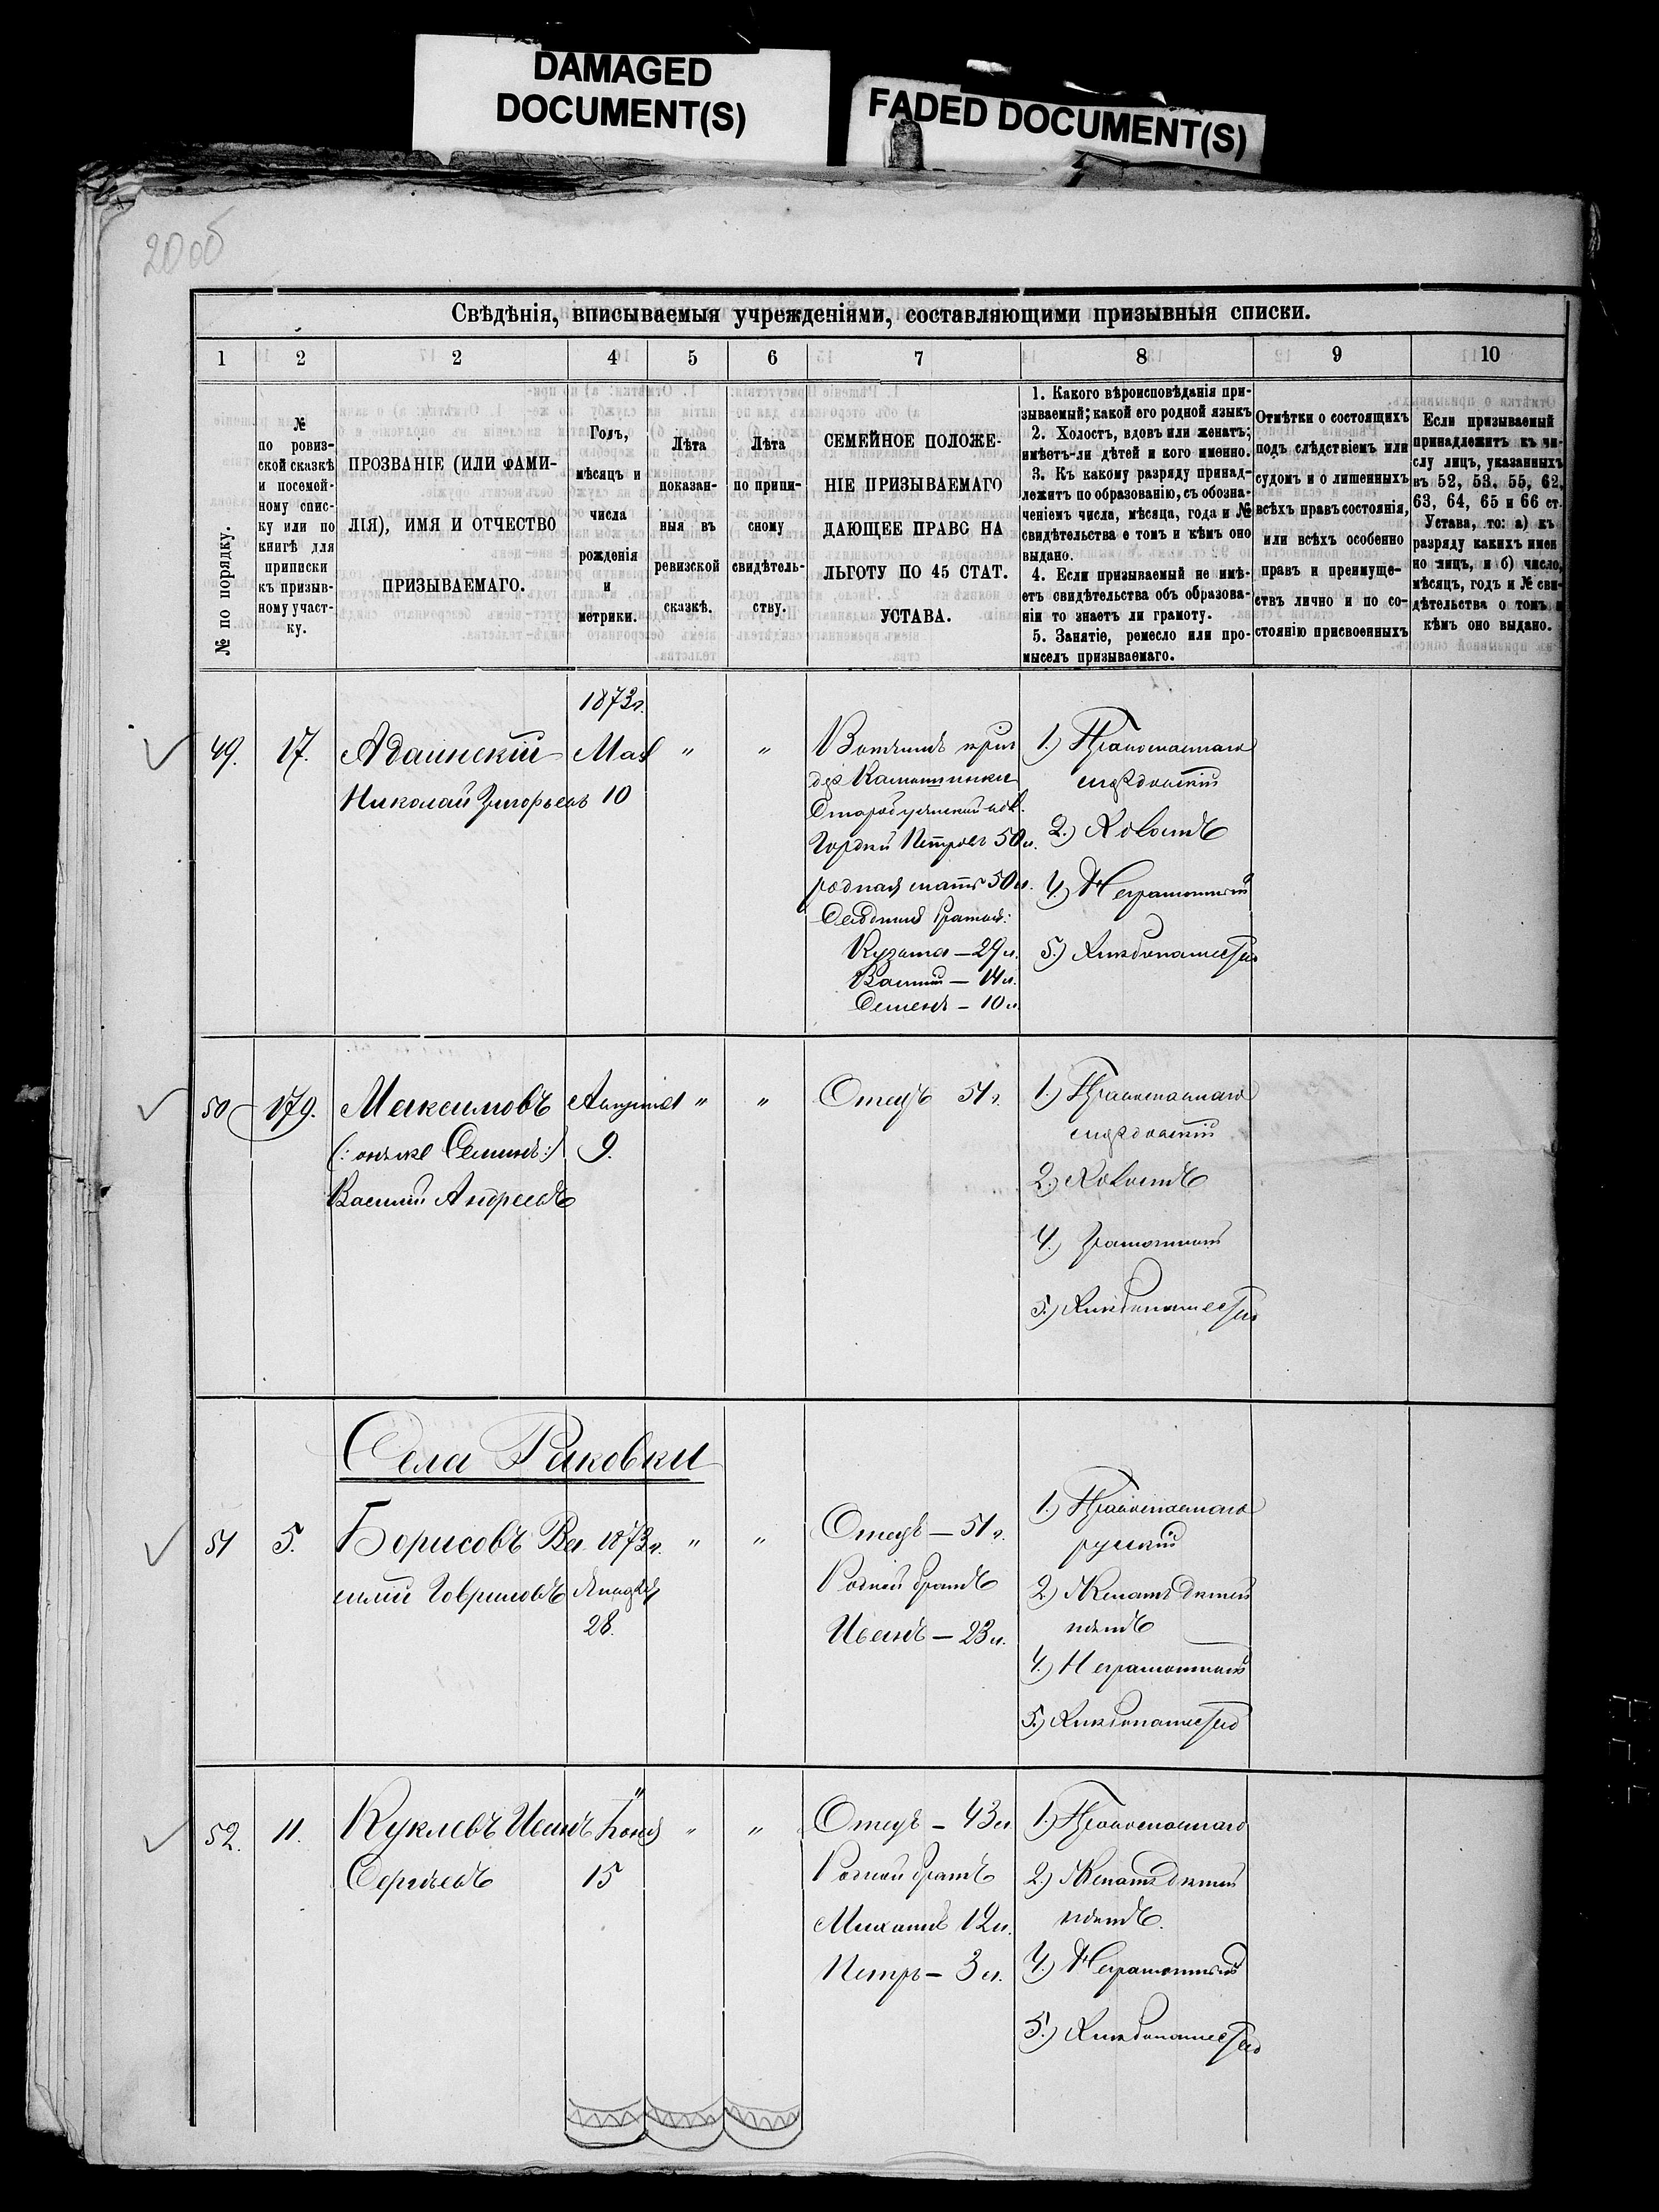 DAMAGED
DOCUMENT(S)
FADED DOCUMENT(S)
20об
Свѣдѣнія, вписываемыя учрежденіями, составляющими призывныя списки.
1 2 2 4 5 6 7 8 9 10
№ по порядку.
№
по ровиз-
ской сказкѣ
и посемей-
ному спис-
ку или по
книгѣ для
приписки
къ призыв-
ному участ-
ку.
ПРОЗВАНІЕ (ИЛИ ФАМИ-
ЛІЯ), ИМЯ И ОТЧЕСТВО
ПРИЗЫВАЕМАГО.
Годъ,
мѣсяцъ и
числа
рожденія
и
метрики.
Лѣта
показан-
ныя въ
ревизской
сказкѣ.
Лѣта
по припи-
сному
свидѣтель-
ству.
СЕМЕЙНОЕ ПОЛОЖЕ-
НІЕ ПРИЗЫВАЕМАГО
ДАЮЩЕЕ ПРАВО НА
ЛЬГОТУ ПО 45 СТАТ.
УСТАВА.
1. Какого вѣроисповѣданія при-
зываемый; какой его родной языкъ
2. Холостъ, вдовъ или женатъ;
имѣетъ-ли дѣтей и кого именно.
3. Къ какому разряду принад-
лежитъ по образованію, съ обозна-
ченіемъ числа, мѣсяца, года и №
свидѣтельства о томъ и кѣмъ оно
выдано.
4. Если призываемый не имѣ-
етъ свидѣтельства объ образова-
ніи то знаетъ ли грамоту.
5. Занятіе, ремесло или про-
мыселъ призываемаго.
Отмѣтки о состоящихъ
подъ слѣдствіемъ или
судомъ и о лишенныхъ
всѣхъ правъ состоянія,
или всѣхъ особенно
правъ и преимуще-
ствъ лично и по со-
стоянію присвоенныхъ
Если призываемый
принадлежитъ къ чи-
слу лицъ, указанныхъ
въ 52, 53, 55, 62,
63, 64, 65 и 66 ст.
Устава, то: а) къ
разряду какихъ имен
но лицъ, и б) число,
мѣсяцъ, годъ и № сви-
дѣтельства о томъ и
кѣмъ оно выдано.
1873г.
49. 17. Адаинскій Мая " "
Николай Григорьевъ 10
Вотчимъ
дер Камышинки
Гордѣй Петровъ 50 л.
родная мать 50 л.
Сводные братья:
Кузьма — 29 л.
Василій — 14 л.
Семенъ — 10 л.
1.) Православнаго
мордовскій
2.) Холостъ
4.) Неграмотный
5.) Хлебопашество
50 179. Максимовъ Августа " "
(: онъ же Семинъ:) 9.
Василій Андреевъ
Отецъ 51 г.
1.) Православнаго
мордовскій
2.) Холостъ
4.) Грамотный
5.) Хлебопашество
Села Раковки
51 5. Борисовъ Ва- 1873г. " "
силій Гавриловъ Января
28.
Отецъ — 51 г.
Родной братъ
Иванъ — 23 л.
1.) Православнаго
русскій
2.) Женатъ дѣтей
нѣтъ
4.) Неграмотный
5.) Хлебопашество
52. 11. Куклевъ Иванъ " Іюня " "
Сергѣевъ 15
Отецъ — 43 л.
Родной братъ
Михаилъ 12 л.
Петръ — 3 л.
1.) Православнаго
2.) Женатъ дѣтей
нѣтъ.
4.) Неграмотный
5.) Хлебопашество